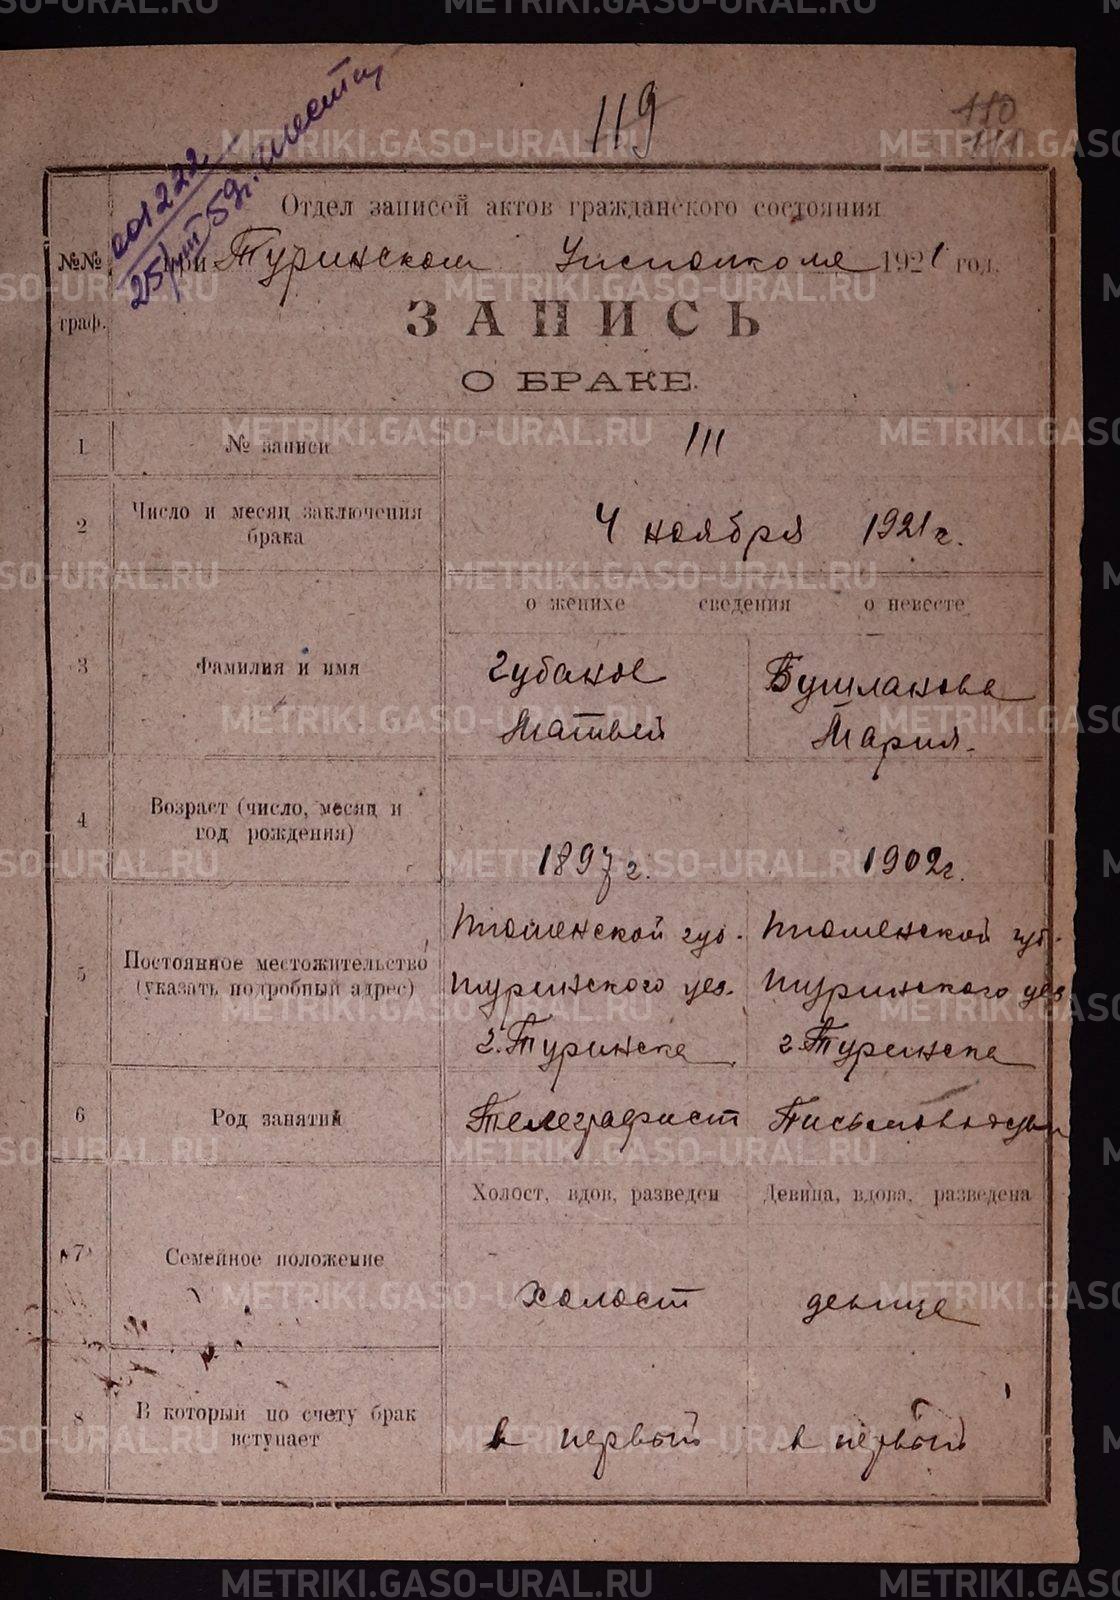 METRIKI.GASO-URAL.RU
119
180
001222
25/VIII 59г.
Отдел записей актов гражданского состояния
при Туринском Уисполкоме 1921 год.
№№ граф.
ЗАПИСЬ
О БРАКЕ.
1 № записи 111
2 Число и месяц заключения брака 4 ноября 1921 г.
о женихе сведения о невесте
3 Фамилия и имя
Губанов Бушланова
Матвей Мария.
4 Возраст (число, месяц и год рождения)
1897 г. 1902 г.
5 Постоянное местожительство (указать подробный адрес)
Тюменской губ. Тюменской губ.
Туринского уез. Туринского уез
г. Туринска г. Туринска
6 Род занятий Телеграфист Письмоводтель
Холост, вдов, разведен Девица, вдова, разведена
7 Семейное положение
Холост девица
8 В который по счету брак вступает
в первый в первый
METRIKI.GASO-URAL.RU